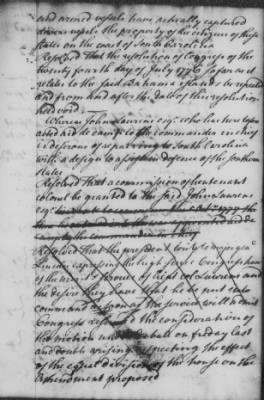 and armed vessels have actually captured
divers vessels the property of the citizens of these
states on the coast of South Carolina
Resolved that the resolution of Congress of the
twenty fourth day of July 1776 so far as it
relates to the said Bahama islands be repealed
and from and after the date of this resolution
held void
Whereas John Laurens esqr. who has heretofore
acted as aid de camp to the commander in chief
is desirous of repairing to South Carolina
with a design to assist in defence of the southern
states
Resolved that a commission of lieutenant
colonel be granted to the said John Laurens
esqr.
Resolved That the president
Lincoln expressing the high sense Congress have
of the
the desire they have that he be not
command as soon as the service will admit
Congress resumed the consideration of
the motion under debate on friday last
and doubt arising respecting the effect
of the equal division of the house on the
amendment proposed